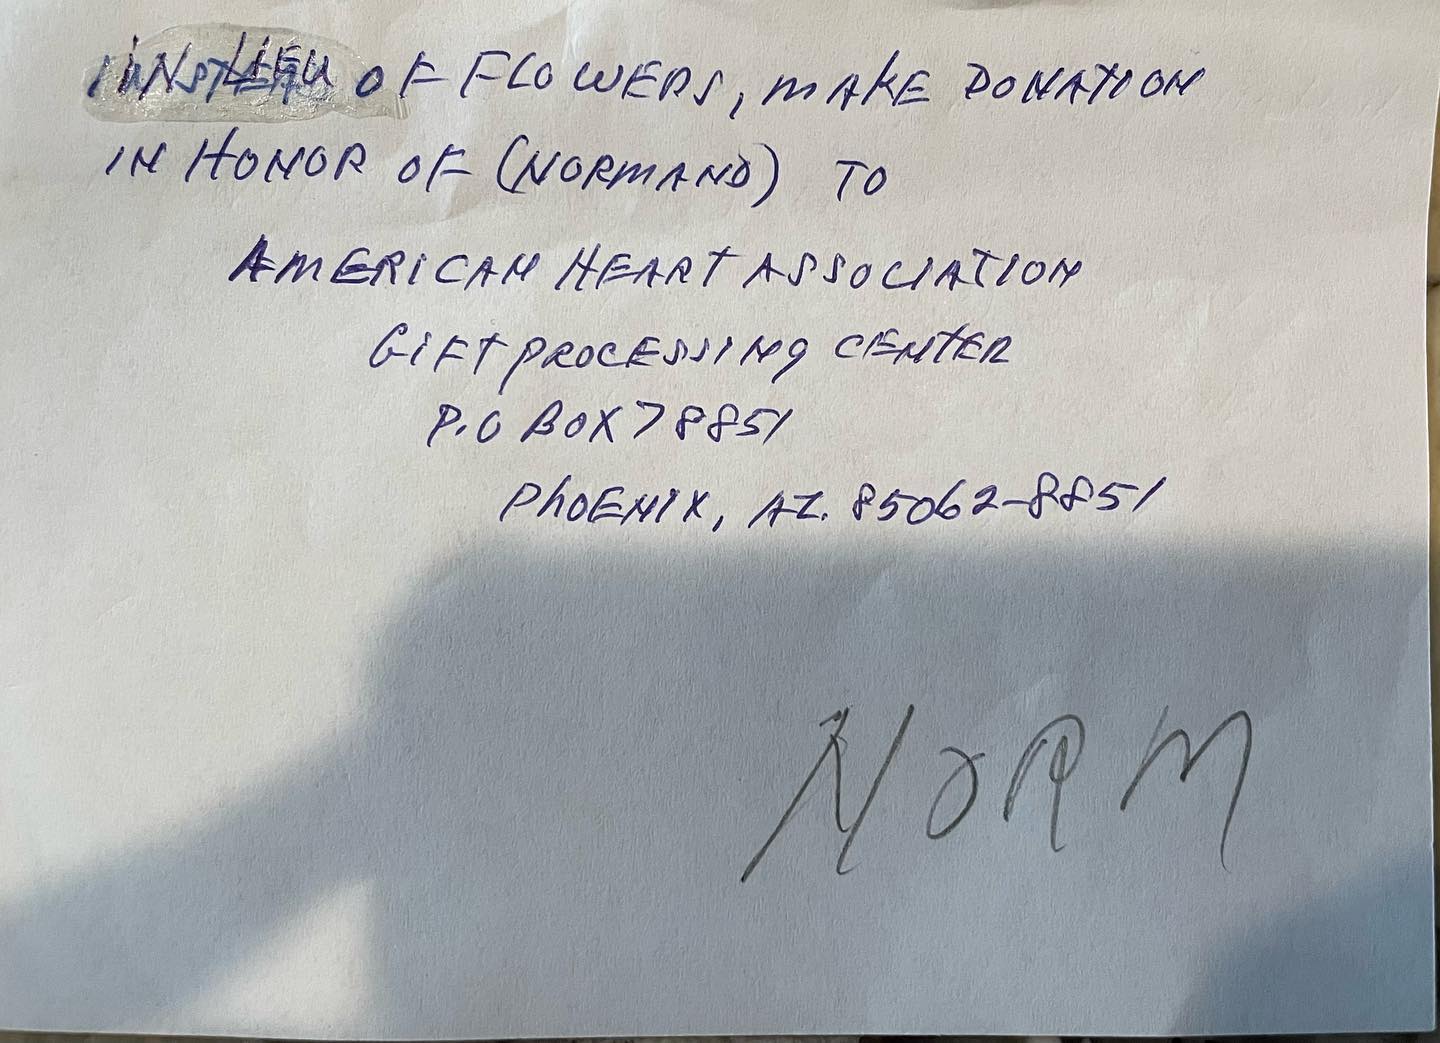 IN LIEU OF FLOWERS, MAKE DONATION
IN HONOR OF (NORMAND) TO
AMERICAN HEART ASSOCIATION
GIFT PROCESSING CENTER
P.O BOX 78851
PhOENIX, AZ. 85062-8851
NORM